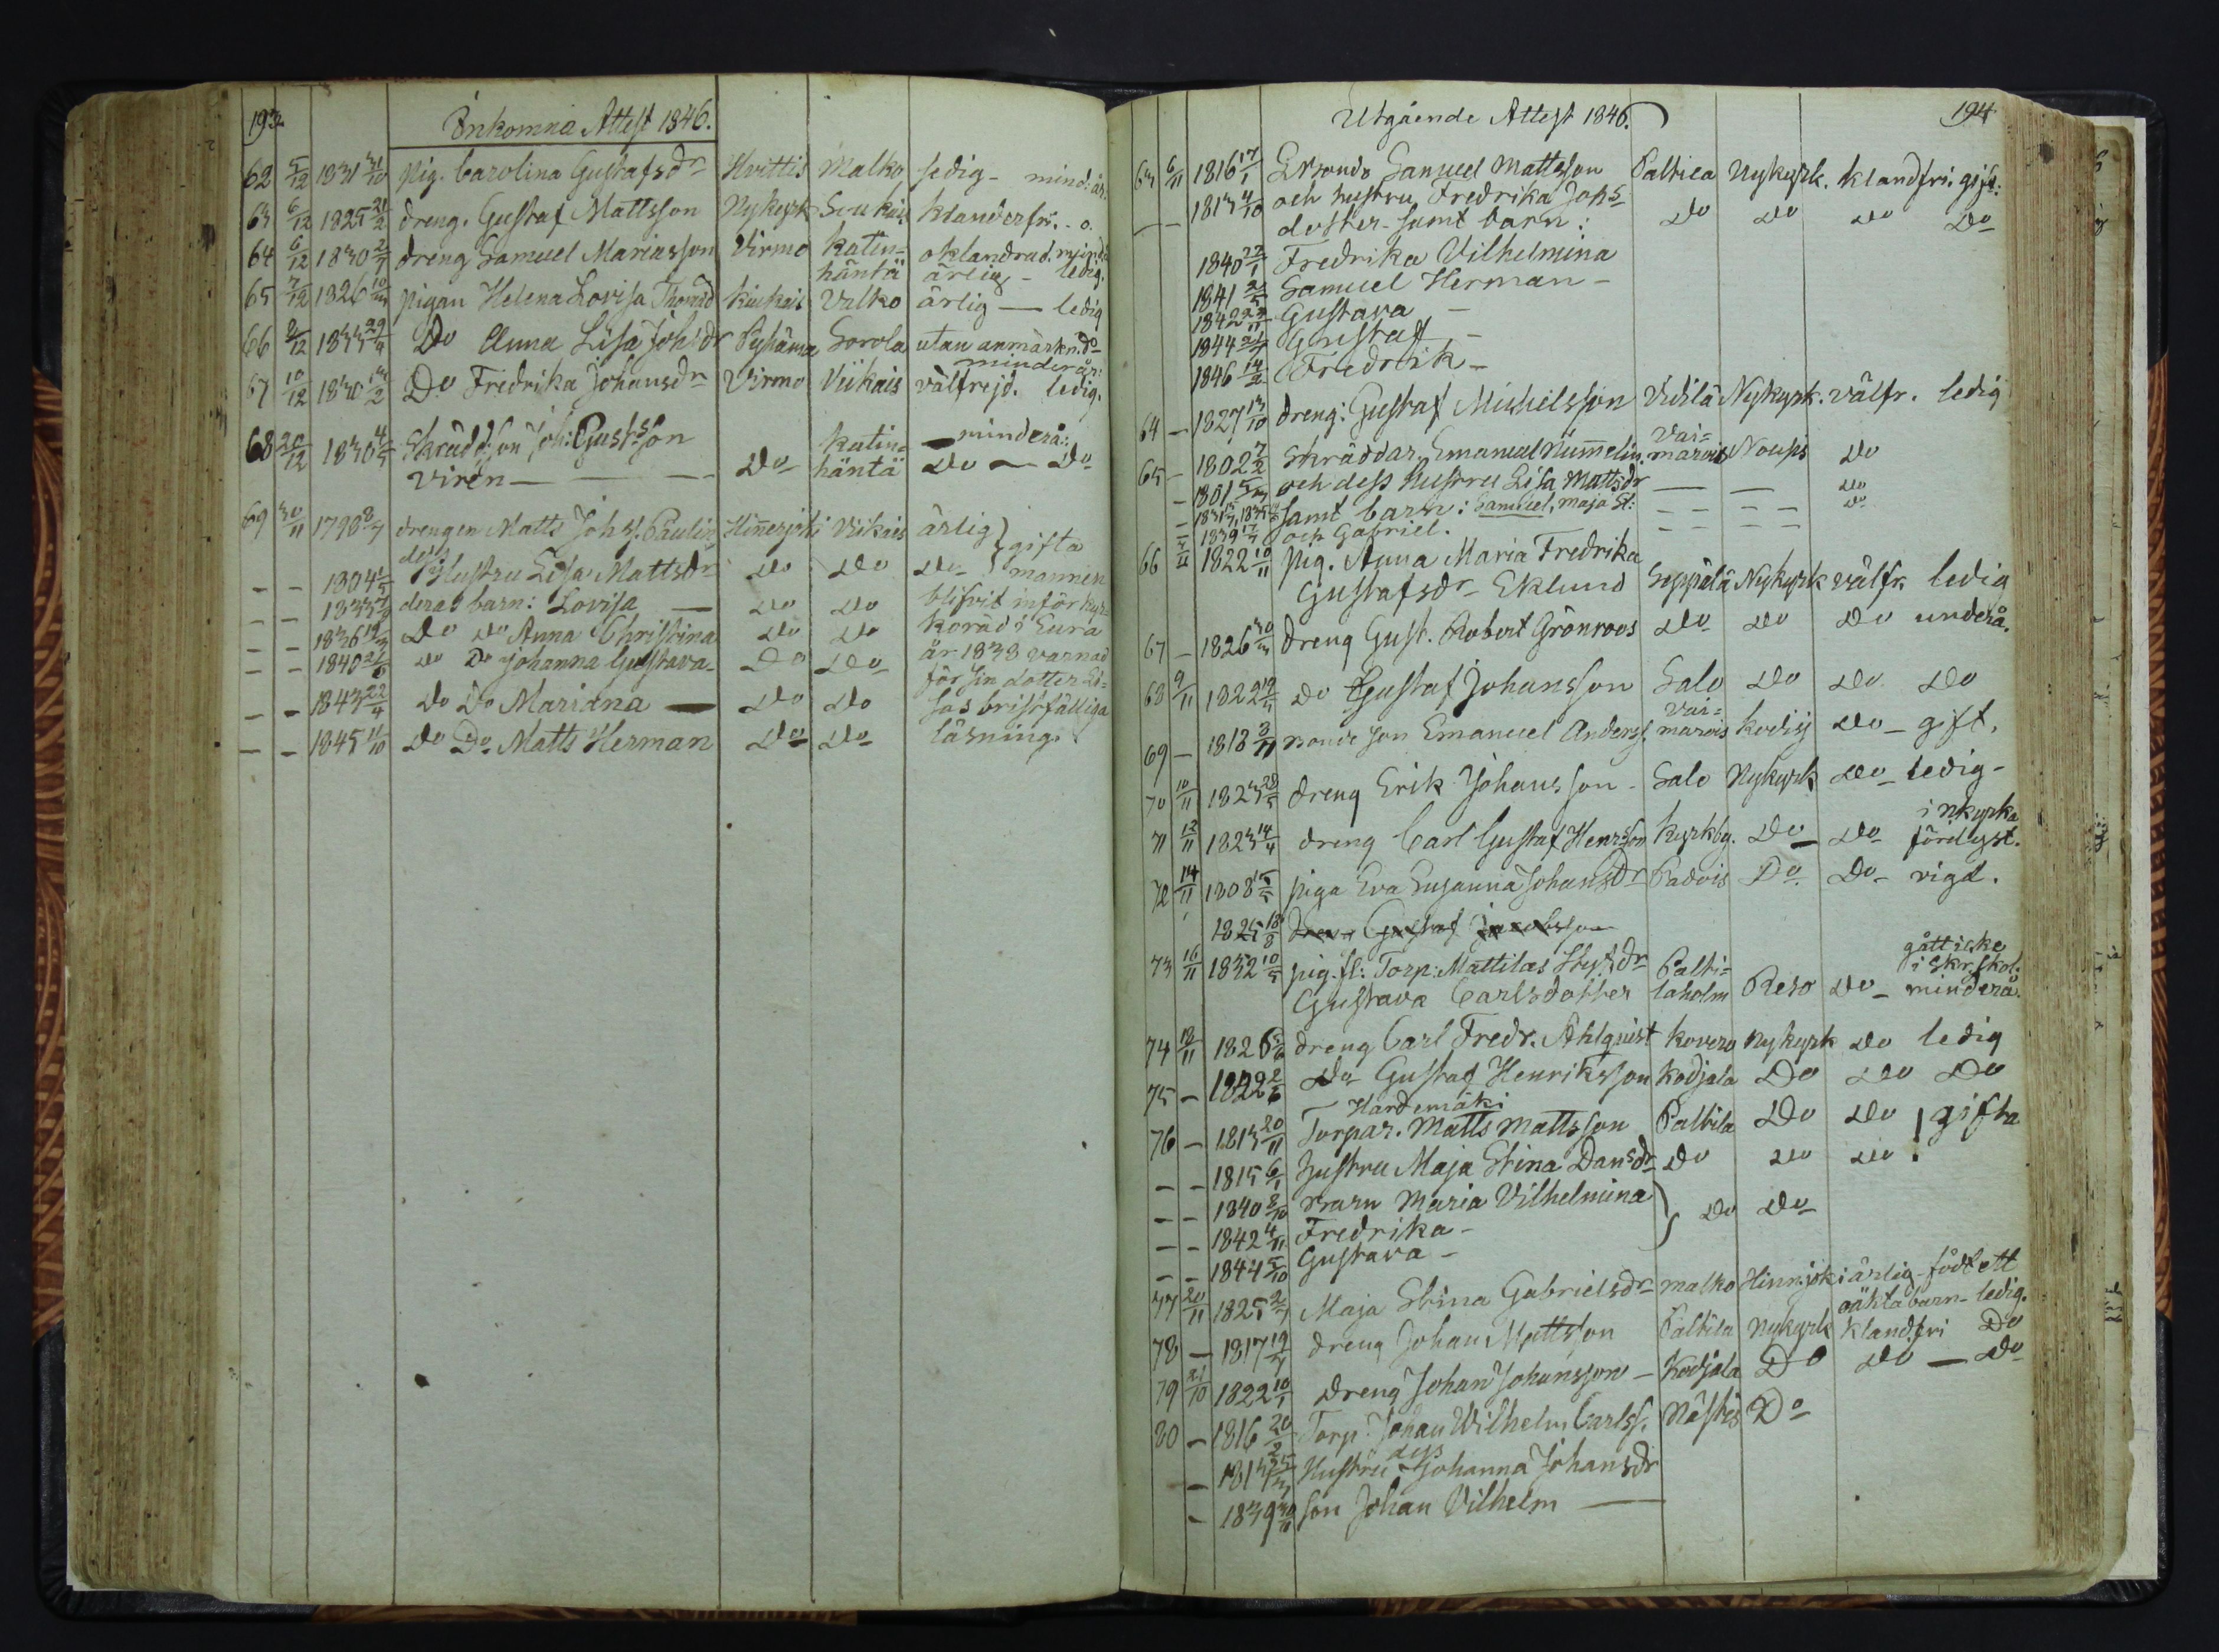 193
Inkomna Attest 1846.
62 5/12 1831 31/10 pig. Carolina Gustafsdr Hvittis Malko ledig - mind: år.
63 6/12 1825 21/2 dreng. Gustaf Mattsson Nykyrk Seukais klanderfri. - o.
64 6/12 1830 2/7 dreng Samuel Mariasson Virmo Katin= oklandrad. mind.
häntä ärlig - ledig.
65 7/12 1826 pigan Helena Lovisa Thomsd Kiukais Valko ärlig — ledig
66 8/12 1833 29/9 Do Anna Lisa Johsdr Pyhäma Sorola utan anmärkn. do
minderår:
67 10/12 1830 13/2 Do Fredrika Johansdr Virmo Viikais välfrejd. ledig.
68 20/12 1830 4/5 Skrädd: son Joh: Gustsson Katin= — minderå:
Virén — — — Do häntä Do — Do
69 30/11 1798 8/7 drengen Matts Johs. Paulin Hinnerjoki Viikais ärlig } gifta
- - 1804 1/5 dess Hustru Lisa Mattsdr Do Do Do } mannen
- - 1833 deras barn: Lovisa — Do Do blifvit inför kyr=
- - 1836 19/3 Do Do Anna Christina Do Do koråd i Eura
- - 1840 21/6 Do Do Johanna Gustava - Do Do år 1838 varnad
för sin dotter Lo=
- - 1843 22/4 Do Do Mariana — Do Do sas bristfälliga
- - 1845 11/10 Do Do Matts Herman Do Do läsning.
Utgående Attest 1846.
194
63 6/11 1816 17/1 Bonde Samuel Mattsson Paltila Nykyrk. klandfri. gift:
- - 1813 4/10 och hustru Fredrika Johs=
dotter - samt barn: Do Do Do Do
1840 22/1 Fredrika Vilhelmina
1841 2/5 Samuel Herman -
1842 23/11 Gustava -
1844 21/7 Gustaf -
1846 14/2 Fredrik -
64 - 1827 13/10 dreng: Gustaf Michelsson Vidilä Nykyrk. välfr. ledig
65 - 1802 7/2 Skräddar. Emanuel Numelin. Vai=marois Noups Do
- 1801 5/3 och dess hustru Lisa Mattsdr — — Do
- 1831 samt barn: Samuel, Maja St: - - - - Do
- 1839 17/7 och Gabriel. - - - -
66 7/11 1822 10/11 pig. Anna Maria Fredrika
Gustafsdr - Eklund Seppälä Nykyrk välfr. ledig
67 - 1826 30/3 dreng Gust. Robert Grönroos Do Do Do underå.
68 9/11 1822 Do Gustaf Johansson Salo Do Do Do
69 - 1818 3/11 Bonde son Emanuel Anderss. Vai=marois Kodisj Do - gift.
70 10/11 1823 28/5 dreng Erik Johansson - Salo Nykyrk Do - ledig -
71 12/11 1823 14/4 dreng Carl Gustaf Henrsson Kyrkby. Do - Do i Nkyrka
förelyst.
72 14/11 1808 15/5 piga Eva Susanna Johansdr Padois Do Do - vigd.
1825 18/8 Dreng Gustaf Jacobsson
73 16/11 1832 10/5 pig. fl: Torp: Mattilas Stystdr Palti= gått icke
i skr. skol.
Gustava Carlsdotter laholm Reso Do - minderå.
74 18/11 1826 5/6 dreng Carl Fredr. Ahlquist Kovero Nykyrk Do ledig
75 - 1822 2/6 Do Gustaf Henriksson Kodjala Do Do Do
Hardemäki
76 - 1813 20/11 Torpar. Matts Mattsson Paltila Do Do } gifta
- - 1815 6/1 hustru Maja Stina Dansdr Do Do Do
- - 1840 8/10 Barn Maria Vilhelmina } Do Do
- - 1842 4/11 Fredrika -
- - 1844 5/10 Gustava -
77 20/11 1825 2/7 Maja Stina Gabrielsdr Malko Hinn.joki ärlig - födt ett
oäkta barn - ledig.
78 - 1817 19/7 dreng Johan Mattsson Paltila Nykyrk klandfri Do
79 21/10 1822 10/1 dreng Johan Johansson - Kodjala Do Do — Do
80 - 1816 20/2 Torp. Johan Wilhelm Carlss. Nästis Do
- 1813 Hustru dess Johanna Johansdr
- 1839 30/11 son Johan Vilhelm —